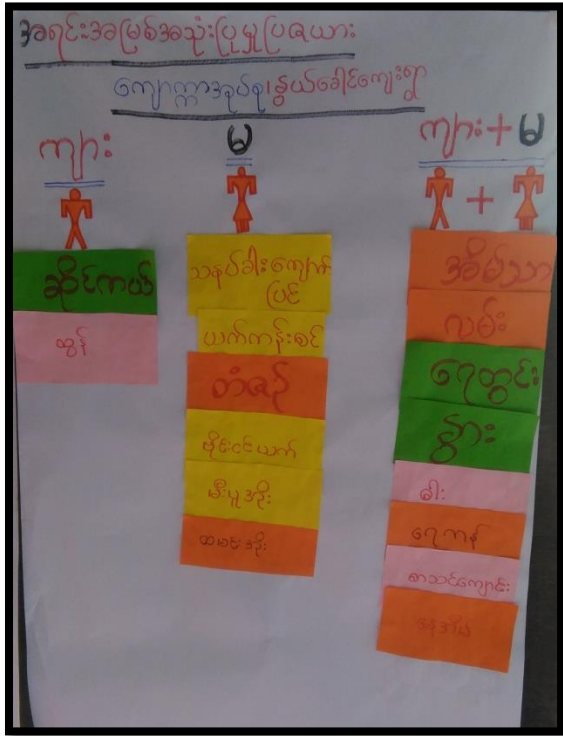 အရင်းအမြစ်အသုံးပြုမှုပြဇယား
ကျောက္ကာအုပ်စု၊နွယ်ခေါင်ကျေးရွာ
ကျား
မ
ကျား+မ
+
ဆိုင်ကယ်
ထွန်
သနပ်ခါးကျောက်
ပြင်
ယက်ကန်းစင်
တံစဉ်
ဗိုင်းငင်ယက်
မီးပူအိုး
ထမင်းအိုး
အိမ်သာ
လမ်း
ရေတွင်း
နွား
ဓါး
ရေကန်
စာသင်ကျောင်း